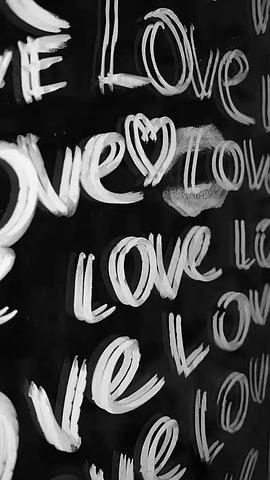 E Love
ove♡Love
Love Lo
ve Lov
ve Lov